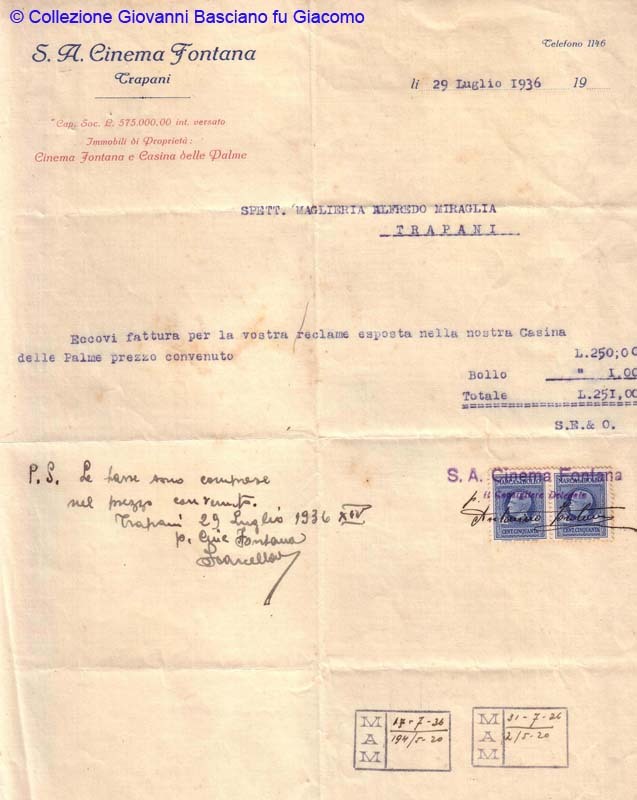 © Collezione Giovanni Basciano fu Giacomo
S. A. Cinema Fontana
Trapani
Telefono 1146
lì 29 Luglio 1936 19
Cap. Soc. L. 575.000,00 int. versato
Immobili di Proprietà:
Cinema Fontana e Casina delle Palme
SPETT. MAGLIERIA ALFREDO MIRAGLIA
TRAPANI
Eccovi fattura per la vostra reclame esposta nella nostra Casina
delle Palme prezzo convenuto L.250;00
Bollo " 1,00
Totale L.251,00
S.E.& O.
P.S. Le tasse sono comprese
nel prezzo convenuto.
Trapani 29 Luglio 1936 XIV
p. Cine Fontana
S. A. Cinema Fontana
Il Consigliere Delegato
p. Antonino
MARCA DA BOLLO MARCA DA BOLLO
CENT. CINQUANTA CENT. CINQUANTA
MAM 17-7-36
194/5-20
MAM 31-7-36
2/5-20